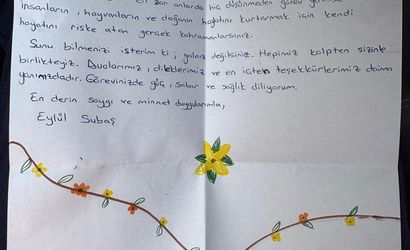 zor anlarda hiç düşünmeden görev
insanların, hayvanların ve doğanın hayatını kurtarmak için kendi
hayatını riske atan gerçek kahramanlarsınız.
Şunu bilmenizi isterim ki; yalnız değilsiniz. Hepimiz kalpten sizinle
birlikteyiz. Dualarımız, dileklerimiz ve en içten teşekkürlerimiz daima
yanınızdadır. Görevinizde güç, sabır ve sağlık diliyorum.
En derin saygı ve minnet duygularımla,
Eylül Subaş